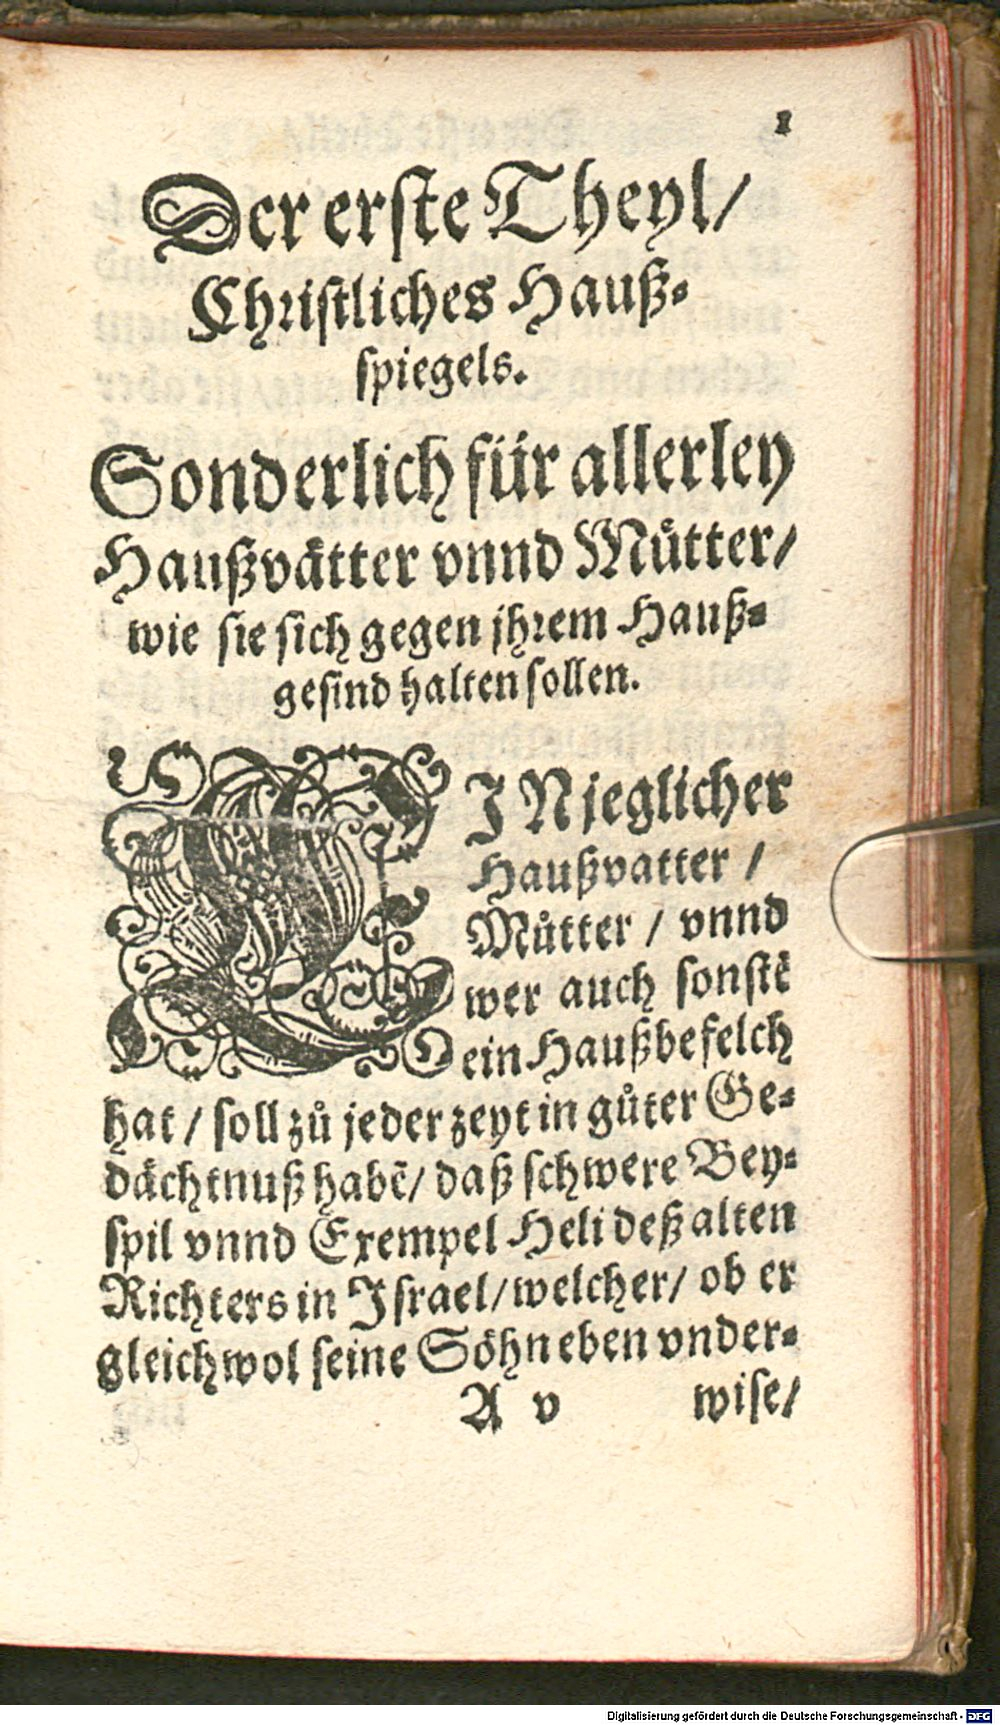 1
Der erste Theyl/
Christliches Hauß-
spiegels.
Sonderlich für allerley
Haußvätter vnnd Můtter/
wie sie sich gegen jhrem Hauß-
gesind halten sollen.
EIN jeglicher
Haußvatter /
Můtter / vnnd
wer auch sonstẽ
ein Haußbefelch
hat / soll zů jeder zeyt in gůter Ge-
dächtnuß habẽ/ daß schwere Bey-
spil vnnd Exempel Heli deß alten
Richters in Israel/ welcher/ ob er
gleichwol seine Söhn eben vnder-
A v wise/
Digitalisierung gefördert durch die Deutsche Forschungsgemeinschaft - DFG